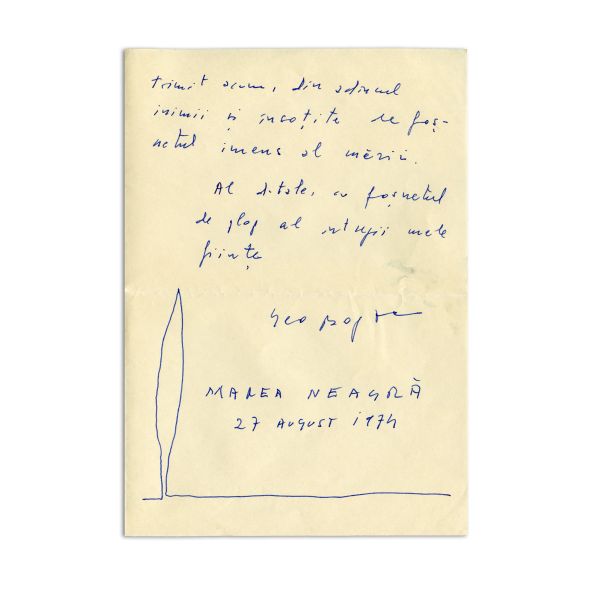 trimit acum, din adîncul
inimii și însoțite de foș-
netul imens al mării.
Al d-tale, cu foșnetul
de plop al întregii mele
ființe
Geo Bogza
MAREA NEAGRĂ
27 AUGUST 1974